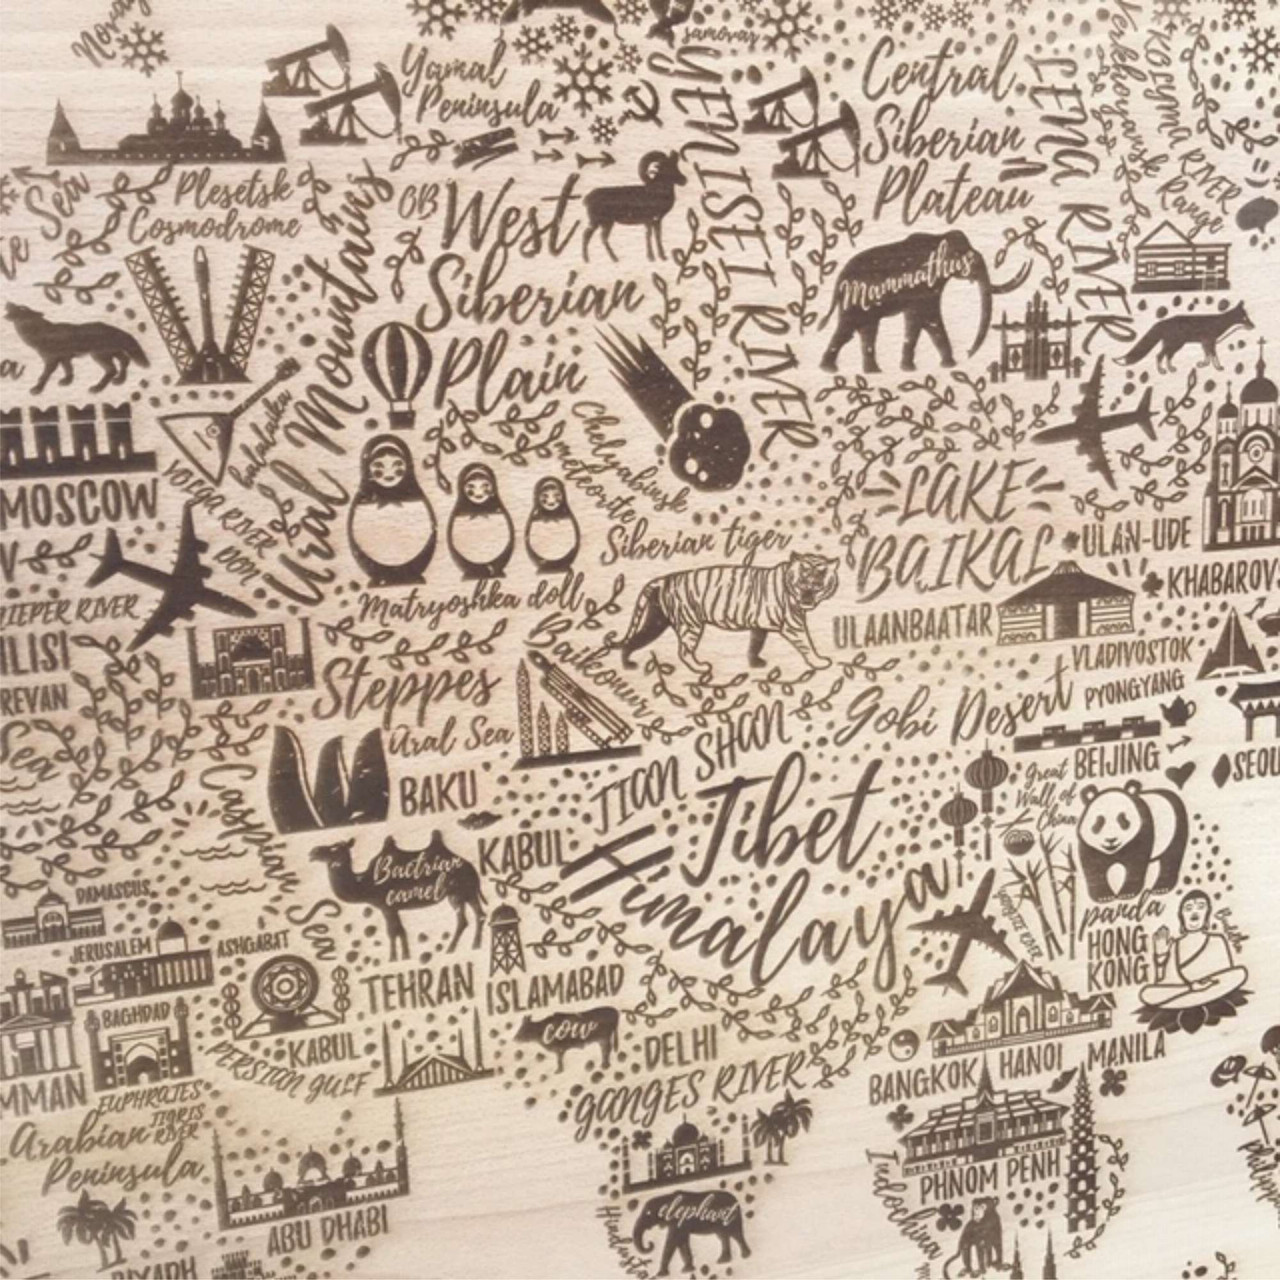 samovar
Yamal
Peninsula
Central
Siberian
Plateau
YENISEI RIVER
LENA RIVER
Verkhoyansk
Range
KOLYMA RIVER
Sea
Plesetsk
Cosmodrome
OB
West
Siberian
Plain
Ural Mountains
Mammathus
balalaika
Chelyabinsk
meteorite
MOSCOW
VOLGA RIVER
DON
LAKE
BAIKAL
ULAN-UDE
Siberian tiger
KHABAROV
Matryoshka doll
IEPER RIVER
ULAANBAATAR
ILISI
REVAN
Steppes
Baikonur
VLADIVOSTOK
PYONGYANG
Gobi Desert
Aral Sea
Sea
TIAN SHAN
BEIJING
SEOU
BAKU
Great
Wall of
China
Tibet
Himalaya
Caspian
Sea
Bactrian
camel
KABUL
DAMASCUS
panda
YANGTZE RIVER
Buddha
JERUSALEM
ASHGABAT
HONG
KONG
TEHRAN
ISLAMABAD
BAGHDAD
cow
KABUL
DELHI
PERSIAN GULF
GANGES RIVER
BANGKOK
HANOI
MANILA
MMAN
EUPHRATES
TIGRIS
RIVER
Arabian
Peninsula
PHNOM PENH
Indochina
elephant
ABU DHABI
RIYADH